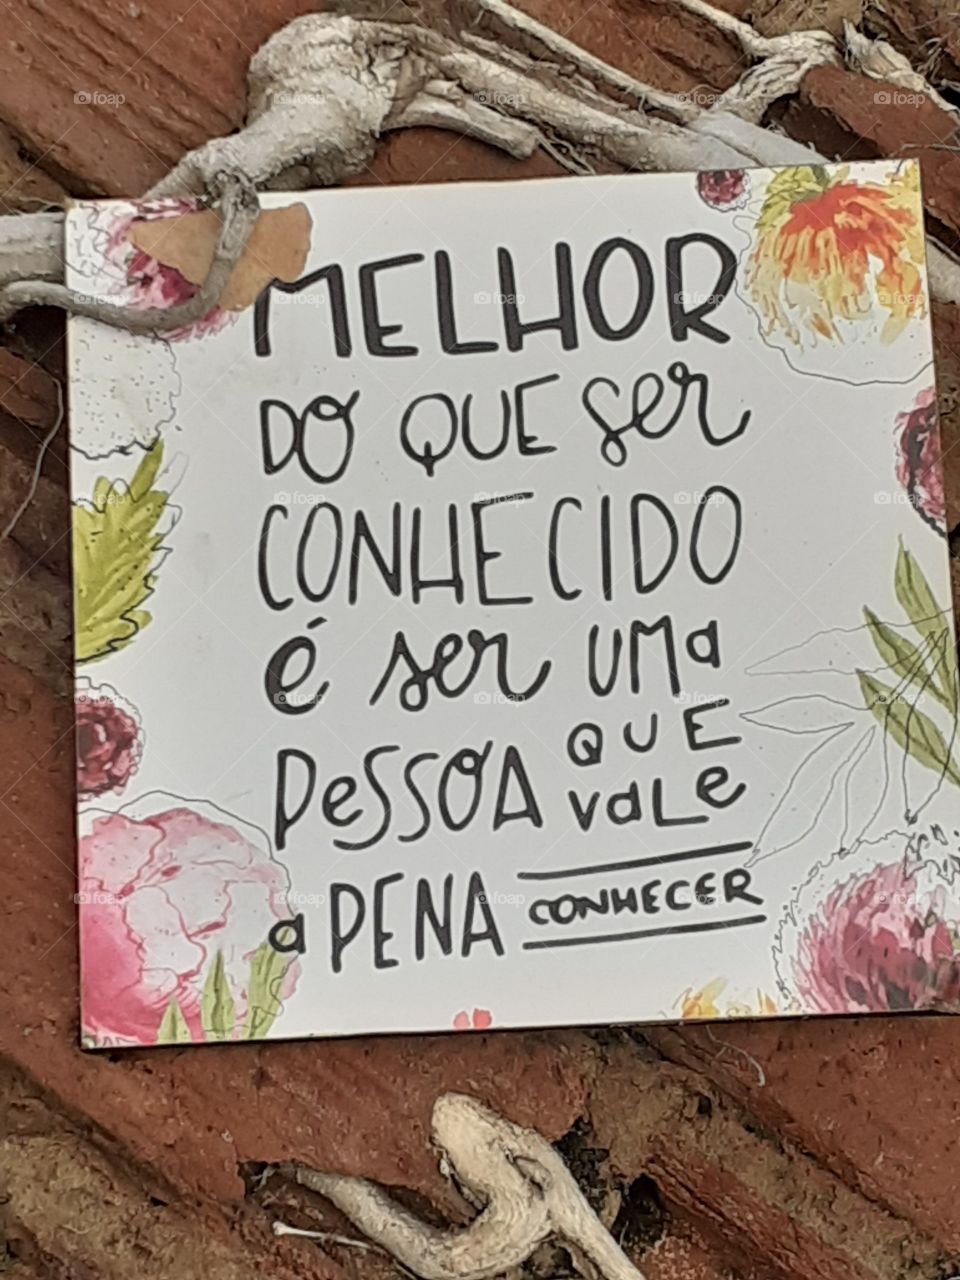 MELHOR
DO QUE ser
CONHECIDO
é ser UMa
PESSOA QUE
vale
a PENA CONHECER